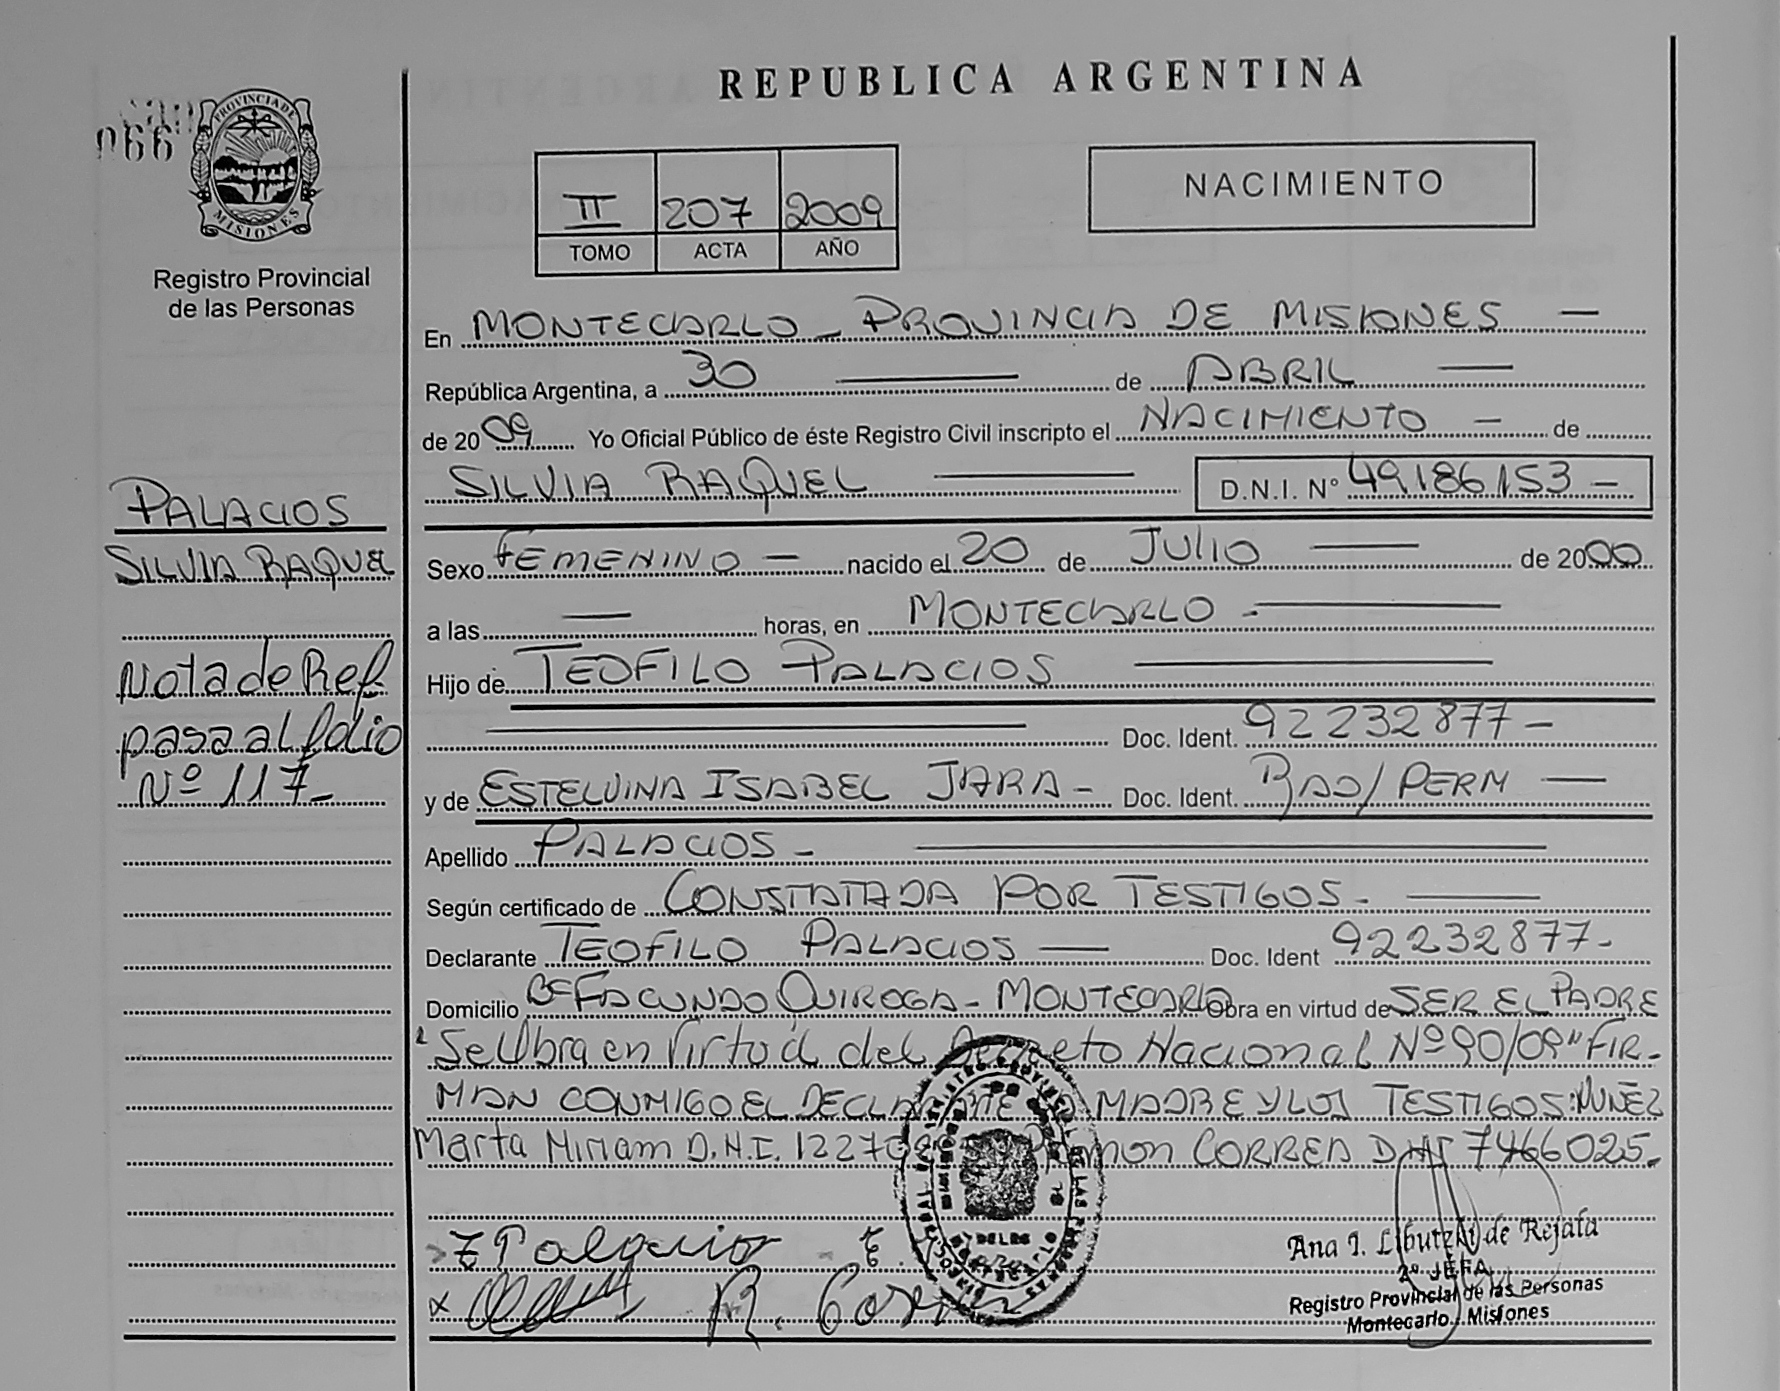 REPUBLICA ARGENTINA
066
PROVINCIA DE
MISIONES
Registro Provincial
de las Personas
II 207 2009
TOMO ACTA AÑO
NACIMIENTO
En MONTECARLO - PROVINCIA DE MISIONES —
República Argentina, a 30 — de ABRIL —
de 2009 Yo Oficial Público de éste Registro Civil inscripto el NACIMIENTO — de
SILVIA RAQUEL — D.N.I. Nº 49186153 -
PALACIOS
SILVIA RAQUEL
Nota de Ref
pasa al folio
Nº 117-
Sexo FEMENINO — nacido el 20 de JULIO — de 2000
a las — horas, en MONTECARLO -
Hijo de TEOFILO PALACIOS —
— Doc. Ident. 92232877 -
y de ESTELVINA ISABEL JARA - Doc. Ident. RAD/PERM —
Apellido PALACIOS - —
Según certificado de CONSTATADA POR TESTIGOS - —
Declarante TEOFILO PALACIOS — Doc. Ident 92232877-
Domicilio Bº FACUNDO QUIROGA - MONTECARLO Obra en virtud de SER EL PADRE
"Se Obra en Virtud del Decreto Nacional Nº 90/09" FIR-
MAN CONMIGO EL DECLARANTE LA MADRE Y LOS TESTIGOS: NUÑEZ
Marta Miriam D.N.I. Ramon CORREA DNI 7466025-
T Palacios
R. Correa
Ana I. de Rejala
2º JEFA
Registro Provincial de las Personas
Montecarlo - Misiones